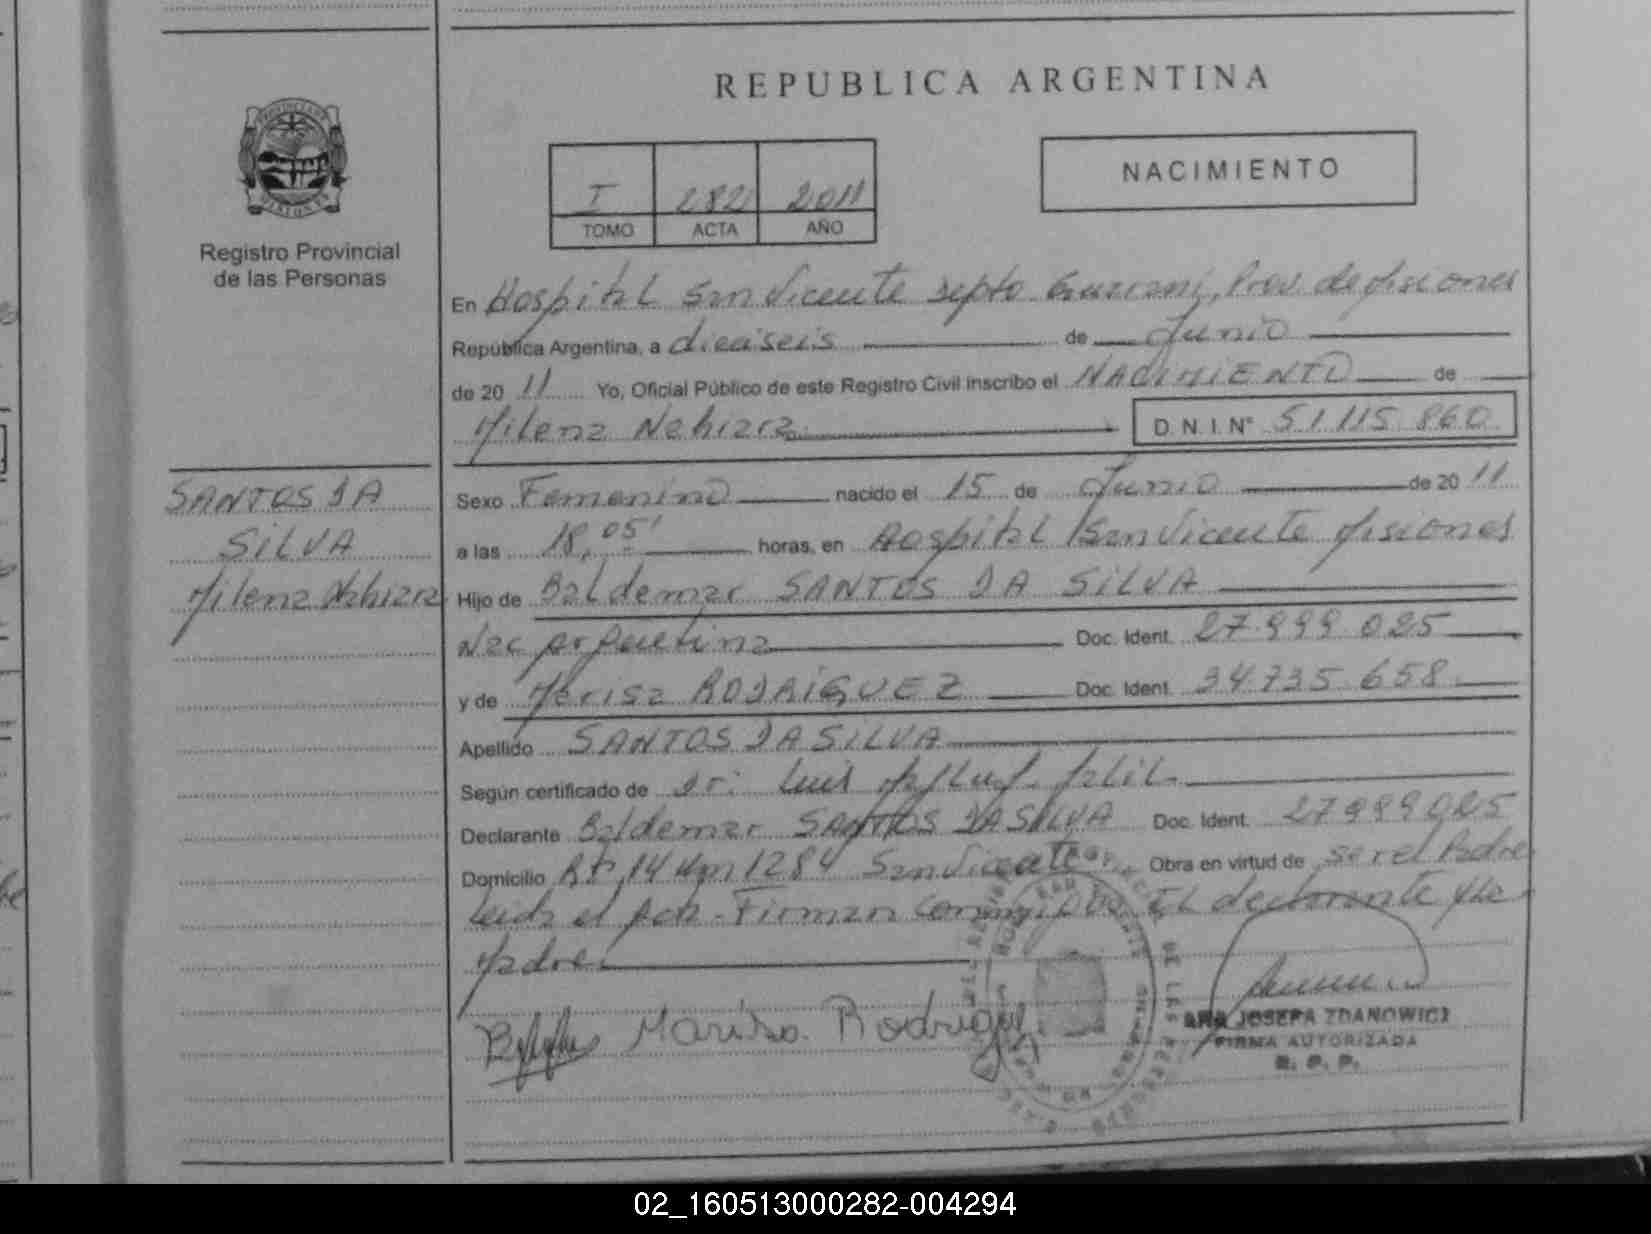 REPUBLICA ARGENTINA
PROVINCIA DE
MISIONES
Registro Provincial
de las Personas
I 282 2011
TOMO ACTA AÑO
NACIMIENTO
En Hospital San Vicente Depto Guarani, Prov. de Misiones
República Argentina, a dieciseis de Junio
de 20 11 Yo, Oficial Público de este Registro Civil inscribo el NACIMIENTO de
Milena Nahiara D. N. I. N° 51.115.860
SANTOS DA
SILVA
Milena Nahiara
Sexo Femenino nacido el 15 de Junio de 20 11
a las 18,05' horas, en Hospital San Vicente Misiones
Hijo de Baldemar SANTOS DA SILVA
Nac Argentina Doc. Ident. 27.999.025
y de Marisa RODRIGUEZ Doc. Ident. 34.735.658
Apellido SANTOS DA SILVA
Según certificado de Dr: Luis
Declarante Baldemar SANTOS DA SILVA Doc. Ident. 27999025
Domicilio 14 Km 1284 San Vicente Obra en virtud de ser el Padre
Leida el Acta - Firman Conmigo El declarante y la
Madre
Marisa Rodriguez
ANA JOSEFA ZDANOWICZ
FIRMA AUTORIZADA
R. P. P.
02_160513000282-004294